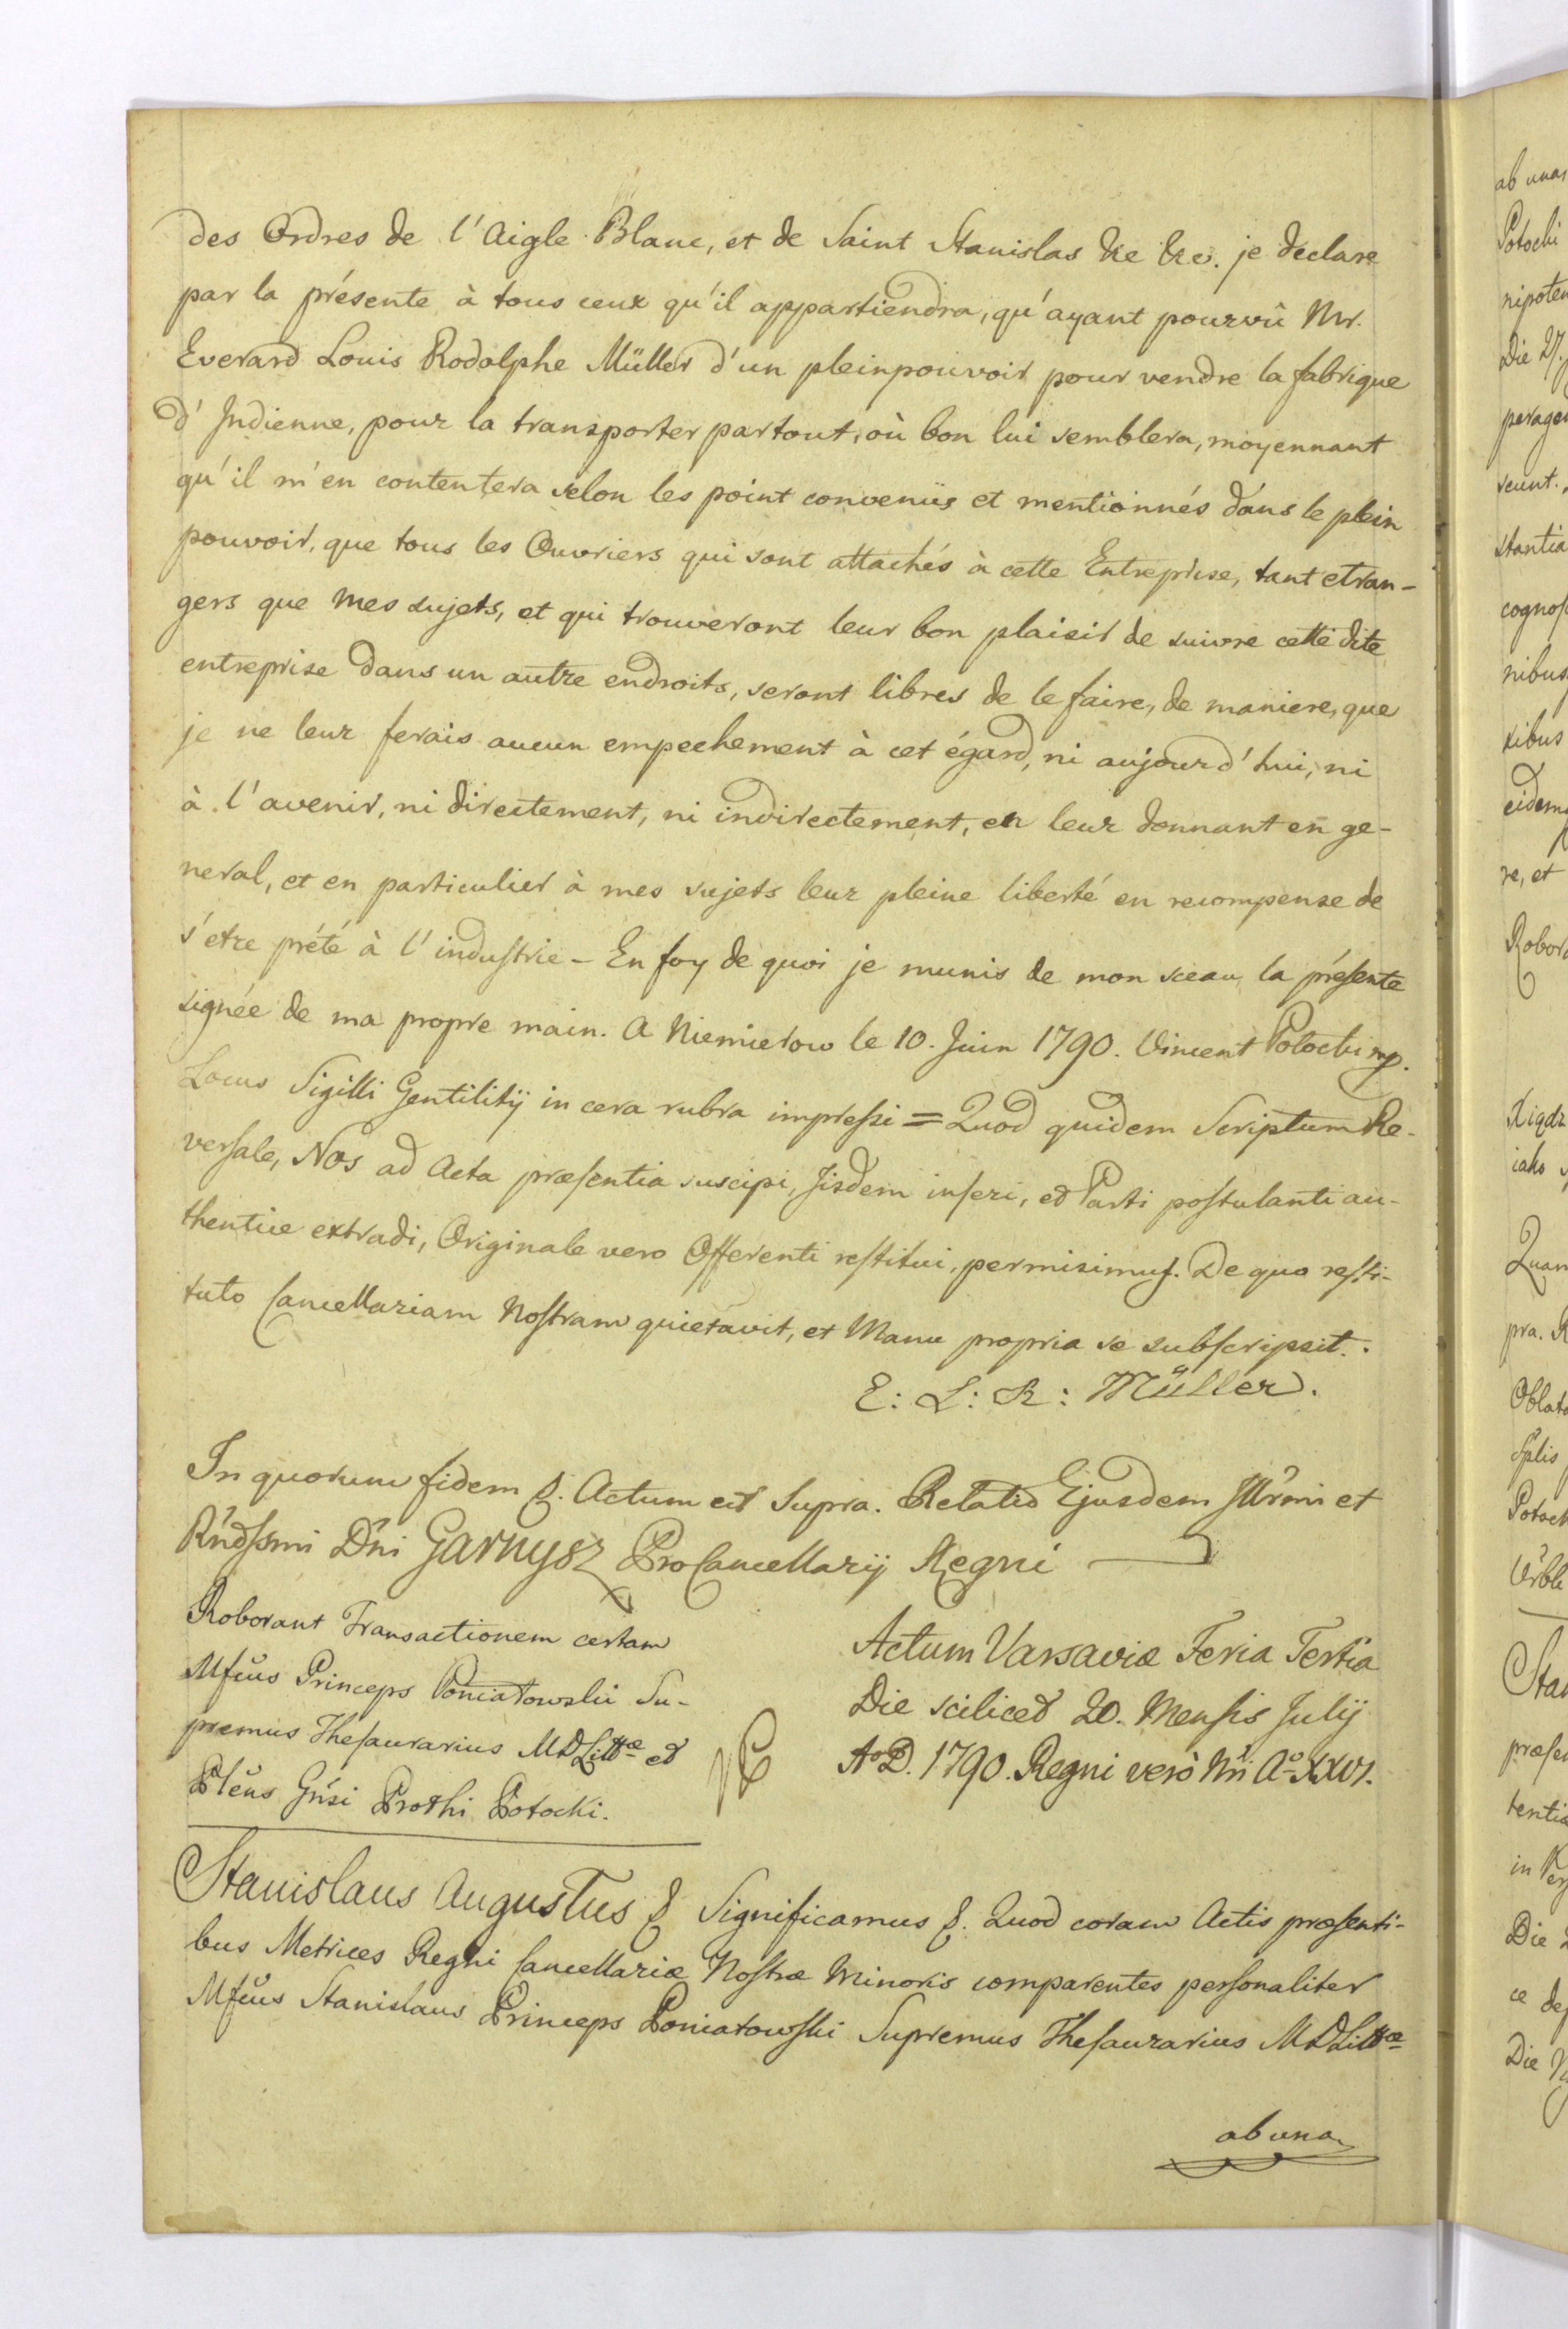 des Ordres de l'Aigle Blanc, et de Saint Stanislas &c &c. je declare
par la présente à tous ceux qu'il appartiendra, qu'ayant pourvû Mr.
Everard Louis Rodolphe Müller d'un pleinpouvoir pour vendre la fabrique
d'Indienne, pour la transporter partout, où bon lui semblera, moyennant
qu'il m'en contentera selon les point convenüs et mentionnés dans le plein
pouvoir, que tous les Ouvriers qui sont attachés à cette Entreprise, tant etran-
gers que mes sujets, et qui trouveront leur bon plaisir de suivre cette dite
entreprise dans un autre endroits, seront libres de le faire, de maniere, que
je ne leur ferais aucun empechement à cet égard, ni aujourd'hui, ni
à l'avenir, ni directement, ni indirectement, en leur donnant en ge-
neral, et en particulier à mes sujets leur pleine liberté en recompense de
s'etre prété à l'industrie - En foy de quoi je munis de mon sceau la présente
signée de ma propre main. A Niemirow le 10. Juin 1790. Vincent Potocki mp.
Locus Sigilli Gentilitij in cera rubra impressi = Quod quidem Scriptum Re-
versale, Nos ad Acta præsentia suscipi, Jisdem inseri, et Parti postulanti au-
thentice extradi, Originale vero Offerenti restitui, permisimus. De quo resti-
tuto Cancellariam Nostram quietavit, et Manu propria se subscripsit.
E: L: R: Müller.
In quorum fidem &. Actum ut Supra. Relatio Ejusdem Jllrmi et
Rndssmi Dni Garnysz ProCancellarij Regni
Roborant Transactionem certam
Mfcus Princeps Poniatowski Su-
premus Thesaurarius MDLittæ et
Plenus Gnsi Prothi Potocki.
Actum Varsaviæ Feria Tertia
Die scilicet 20. Mensis Julij
AoD. 1790. Regni verò Nri Ao XXVI.
Stanislaus Augustus & Significamus &. Quod coram Actis præsenti-
bus Metrices Regni Cancellariæ Nostræ Minoris comparentes personaliter
Mfcus Stanislaus Princeps Poniatowski Supremus Thesaurarius MDLittæ
ab una